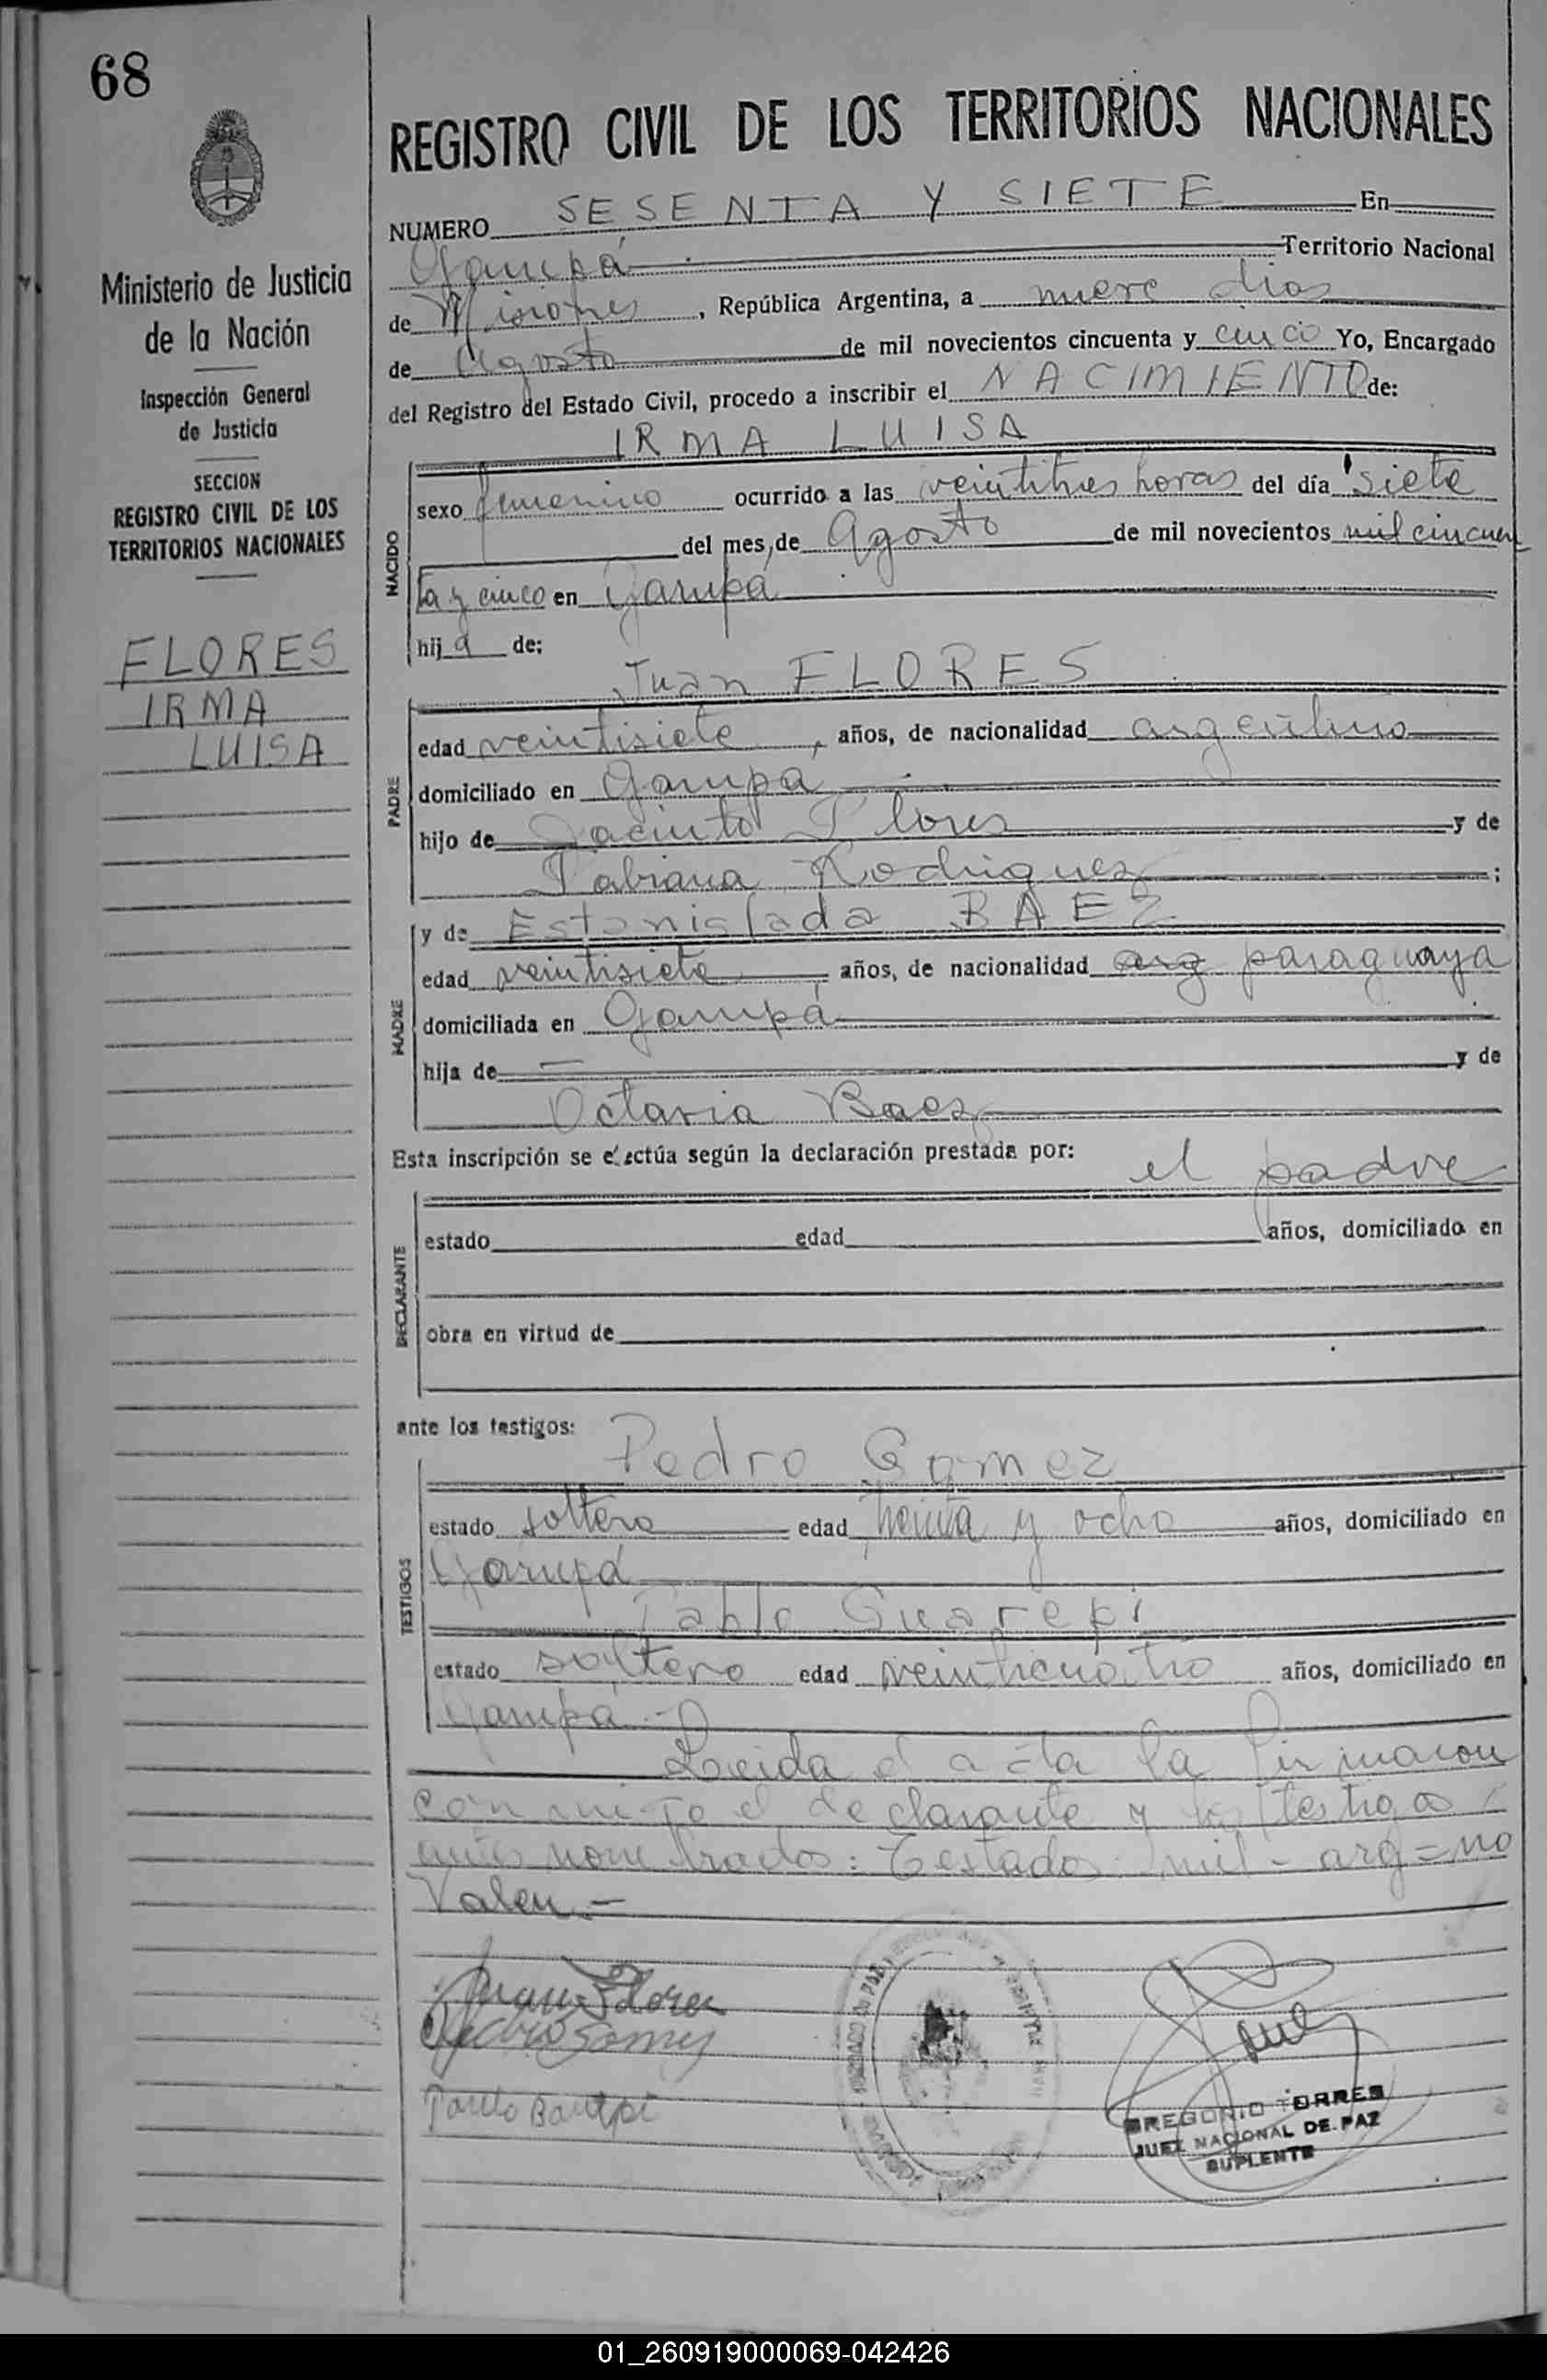 68
Ministerio de Justicia
de la Nación
Inspección General
de Justicia
SECCION
REGISTRO CIVIL DE LOS
TERRITORIOS NACIONALES
FLORES
IRMA
LUISA
REGISTRO CIVIL DE LOS TERRITORIOS NACIONALES
NUMERO SESENTA Y SIETE En
Garupá Territorio Nacional
de Misiones, República Argentina, a nueve dias
de Agosto de mil novecientos cincuenta y cinco Yo, Encargado
del Registro del Estado Civil, procedo a inscribir el NACIMIENTO de:
IRMA LUISA
NACIDO
sexo femenino ocurrido a las veintitres horas del día siete
del mes de Agosto de mil novecientos mil cincuen
ta y cinco en Garupá
hij a de:
Juan FLORES
PADRE
edad veintisiete, años, de nacionalidad argentino
domiciliado en Garupá
hijo de Jacinto Flores y de
Fabiana Rodriguez ;
y de Estanislada BAEZ
MADRE
edad veintisiete, años, de nacionalidad arg paraguaya
domiciliada en Garupá
hija de — y de
Octavia Baez
Esta inscripción se efectúa según la declaración prestada por: el padre
DECLARANTE
estado edad años, domiciliado en
obra en virtud de
ante los testigos: Pedro Gomez
TESTIGOS
estado soltero edad treinta y ocho años, domiciliado en
Garupá
Pablo Guarepi
estado soltero edad veinticuatro años, domiciliado en
Garupá.-
Leida el acta la firmaron
con migo el declarante y los testigos
antes nombrados: Testados: mil - arg = no
Valen.-
Juan Flores
Pedro Gomez
GREGORIO TORRES
JUEZ NACIONAL DE PAZ
SUPLENTE
01_260919000069-042426